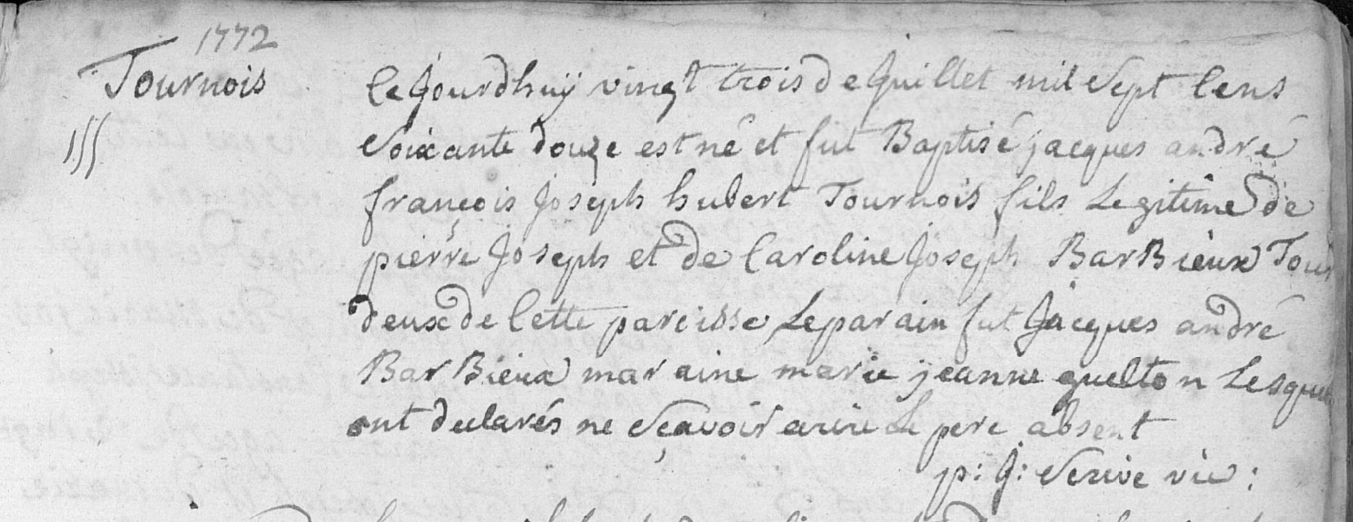 1772
Tournois
Ce Jourdhuÿ vingt trois de Juillet mil Sept Cens
Soixante douze est né et fut Baptisé jacques andré
françois Joseph hubert Tournois fils Legitime de
pierre Joseph et de Caroline Joseph BarBieux Tous
deux de Cette paroisse Le parain fut Jacques andré
BarBieux maraine marie jeanne quelton Lesquels
ont declarés ne Sçavoir ecrire Le pere absent
p: J: vic: